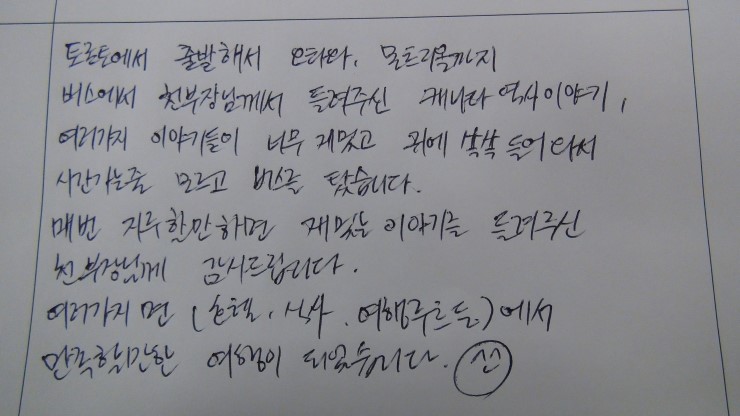 토론토에서 출발해서 오타와, 몬트리올까지
버스에서 천부장님께서 들려주신 캐나다 역사이야기,
여러가지 이야기들이 너무 재밌고 귀에 쏙쏙 들어와서
시간가는줄 모르고 버스를 탔습니다.
매번 지루할만하면 재밌는 이야기를 들려주신
천부장님께 감사드립니다.
여러가지 면 (호텔, 식사, 여행루트등)에서
만족할만한 여행이 되었습니다. 신